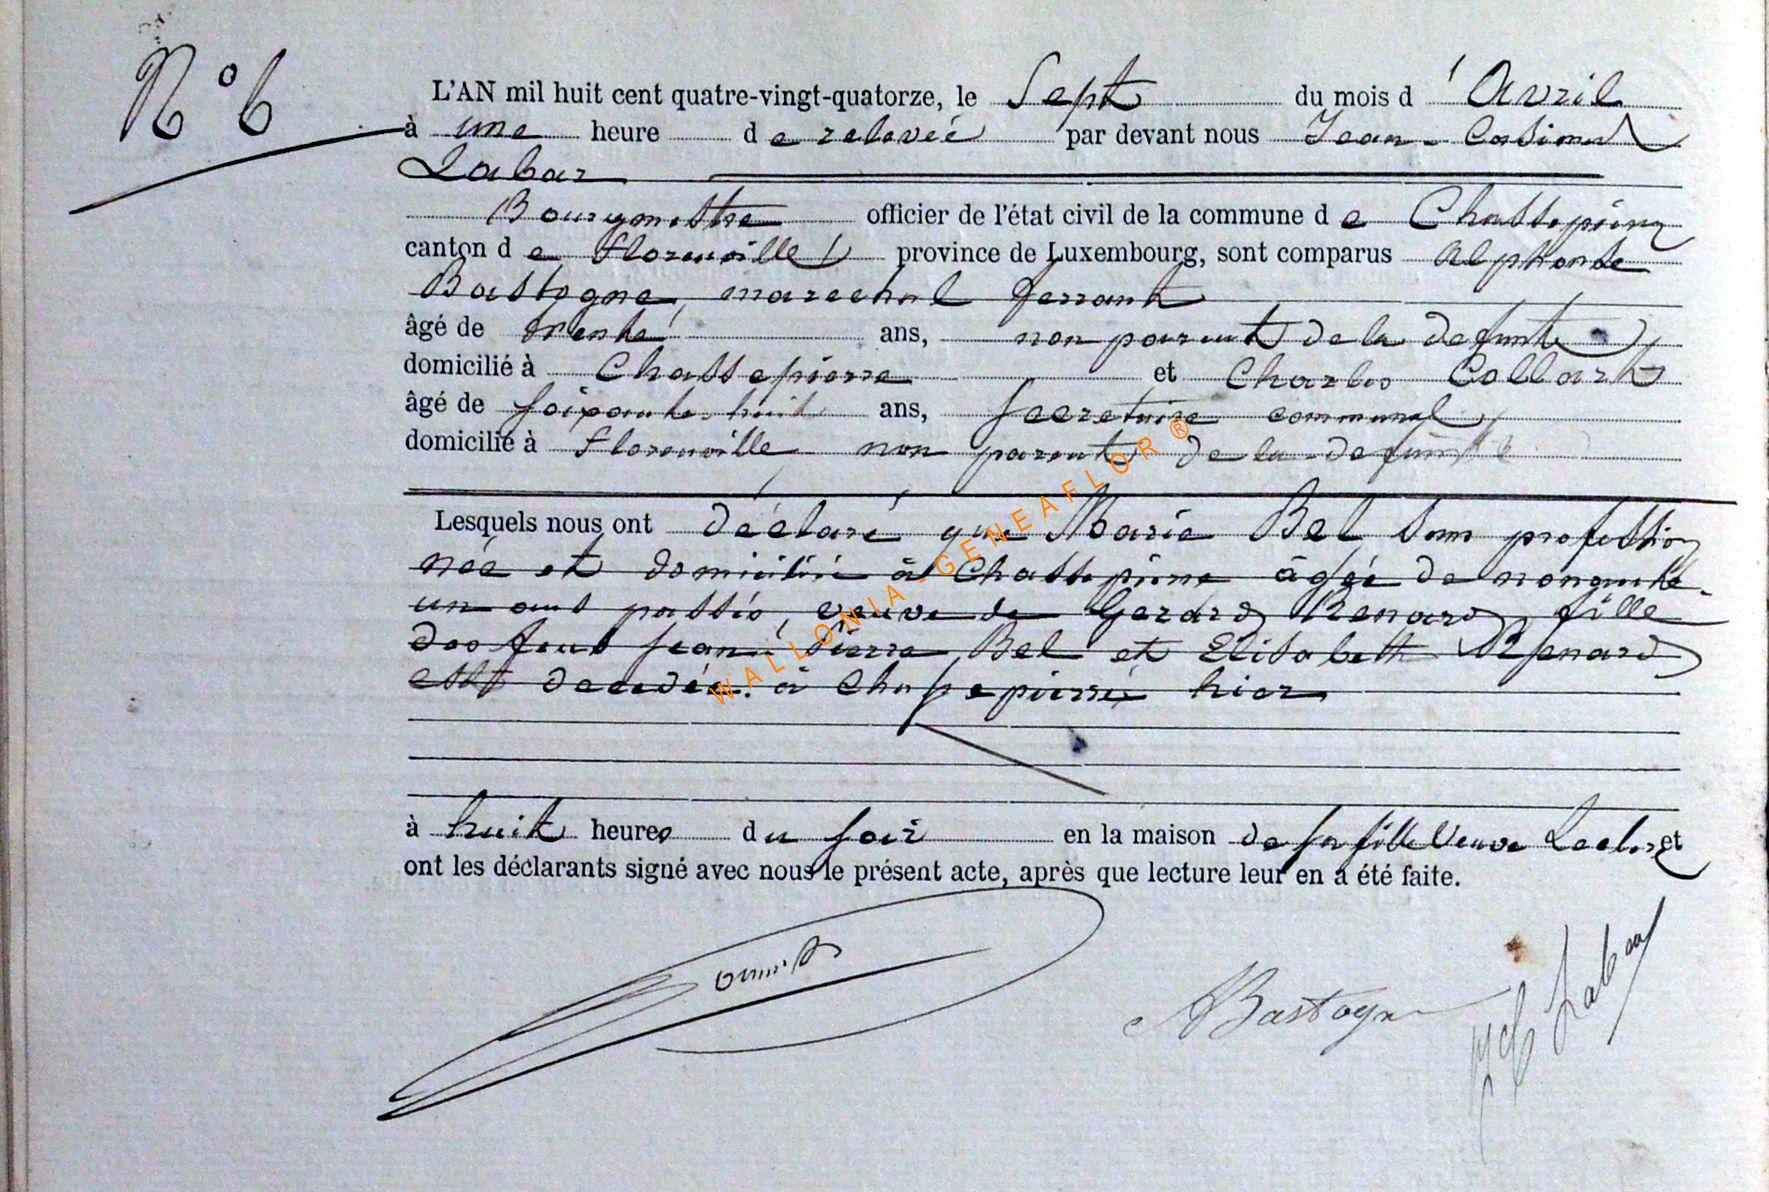 N° 6
L'AN mil huit cent quatre-vingt-quatorze, le Sept du mois d'Avril
à une heure de relevée par devant nous Jean-Casimir
Labar
Bourgmestre officier de l'état civil de la commune de Chassepierre
canton de Florenville province de Luxembourg, sont comparus Alphonse
Bastogne, marechal ferrant
âgé de trente ans, non parent de la defunte
domicilié à Chassepierre et Charles Collart
âgé de soixante huit ans, secretaire communal
domicilié à Florenville non parent de la defunte
Lesquels nous ont déclaré que Marie Bel sans profession
née et domiciliée à Chassepierre âgée de nonante
un ans passés, veuve de Gerard Renard fille
des feus Jean Pierre Bel et Elisabeth Renard
est decedée à Chassepierre hier
à huit heures du soir en la maison de sa fille Veuve et
ont les déclarants signé avec nous le présent acte, après que lecture leur en a été faite.
ABastogne
JC Labar
WALLONIA GENEAFLOR ®